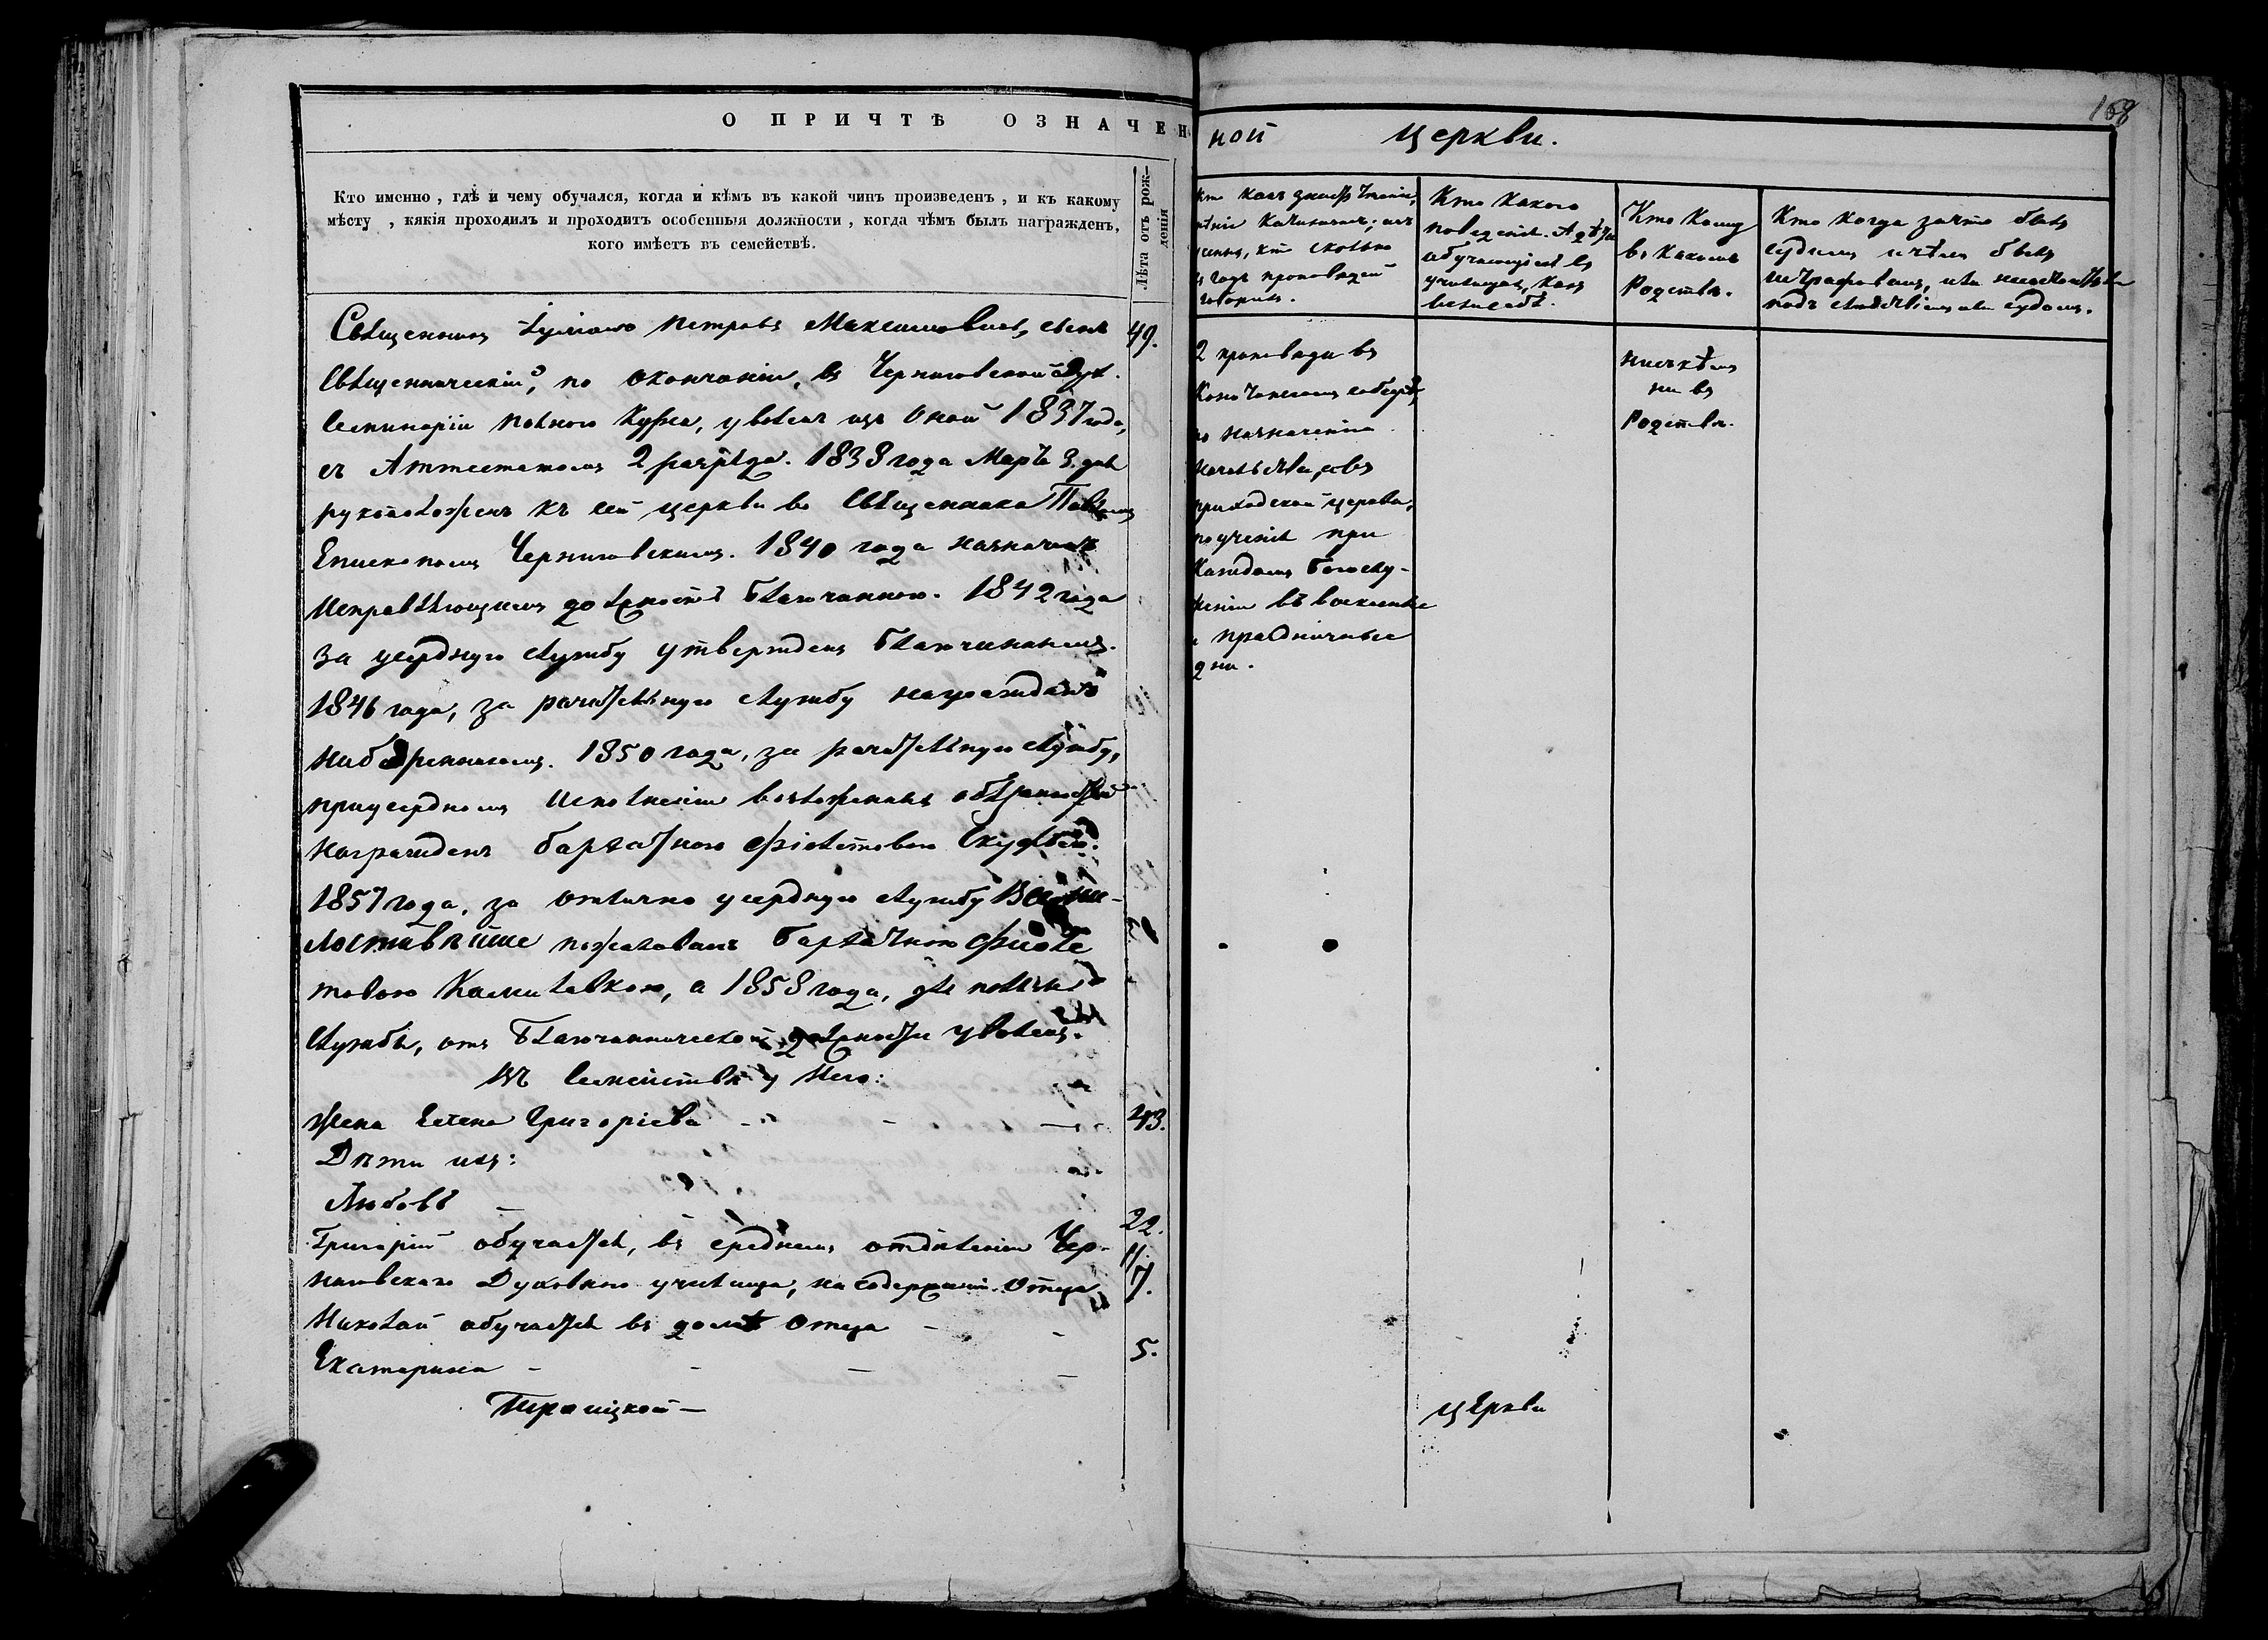 168
О ПРИЧТѢ ОЗНАЧЕН
ной церкви.
Кто именно, гдѣ и чему обучался, когда и кѣмъ въ какой чинъ произведенъ, и къ какому
мѣсту, какія проходилъ и проходитъ особенныя должности, когда чѣмъ былъ награжденъ,
кого имѣетъ въ семействѣ.
Лѣта отъ рож-
денія
Священникъ Петровъ Максимовичъ, сынъ 49.
Священническій, по окончаніи, въ Черниговской Дух.
Семинаріи полнаго Курса, уволенъ изъ оной 1837 года,
съ Аттестатомъ 2 разряда. 1838 года Марта 3. дня
рукоположенъ къ сей церкви во Священника Павломъ
Епископомъ Черниговскимъ. 1840 года назначенъ
Исправляющимъ должность Благочиннаго. 1842 года
за усердную службу утвержденъ Благочиннымъ.
1846 года, за рачительную службу награжденъ
Набедренникомъ. 1850 года, за рачительную службу,
при усердномъ Исполненіи возложенныхъ обязанностей
награжденъ бархатною фіолетовою Скуфьею.
1857 года, за отлично усердную службу Всеми-
лостивѣйше пожалованъ бархатною фиоле
товою Камилавкою, а 1858 года,
службѣ, отъ Благочиннической должности уволенъ.
Въ семействѣ у Него:
Жена Елена Григоріева - - - 43.
Дѣти ихъ:
Любовь - 22.
Григорій обучается, въ среднемъ отдѣленіи Чер- 11.
ниговскаго Духовнаго училища, на содержаніи Отца
Николай обучается въ домѣ Отца - - 7.
Екатерина - - - - 5.
Троицкой —
чтеніе,
Катихизисъ;
сколько
въ годъ проповѣдей
говорилъ.
2 проповѣди въ
соборѣ,
по назначенію
начальства, а въ
приходской церкви,
поученія при
Каждомъ богослу-
женіи въ воскресные
и праздничные
дни.
Кто Какого
поведенія. А дѣти
обучающіяся въ
училищахъ, какъ
ведутъ себя.
церкви
Кто Кому
въ Какомъ
Родствѣ.
Ни съ кѣмъ
ни въ
Родствѣ.
Кто когда за что былъ
судимъ и чѣмъ былъ
штрафованъ, или не состоитъ ли
подъ слѣдствіемъ или судомъ.